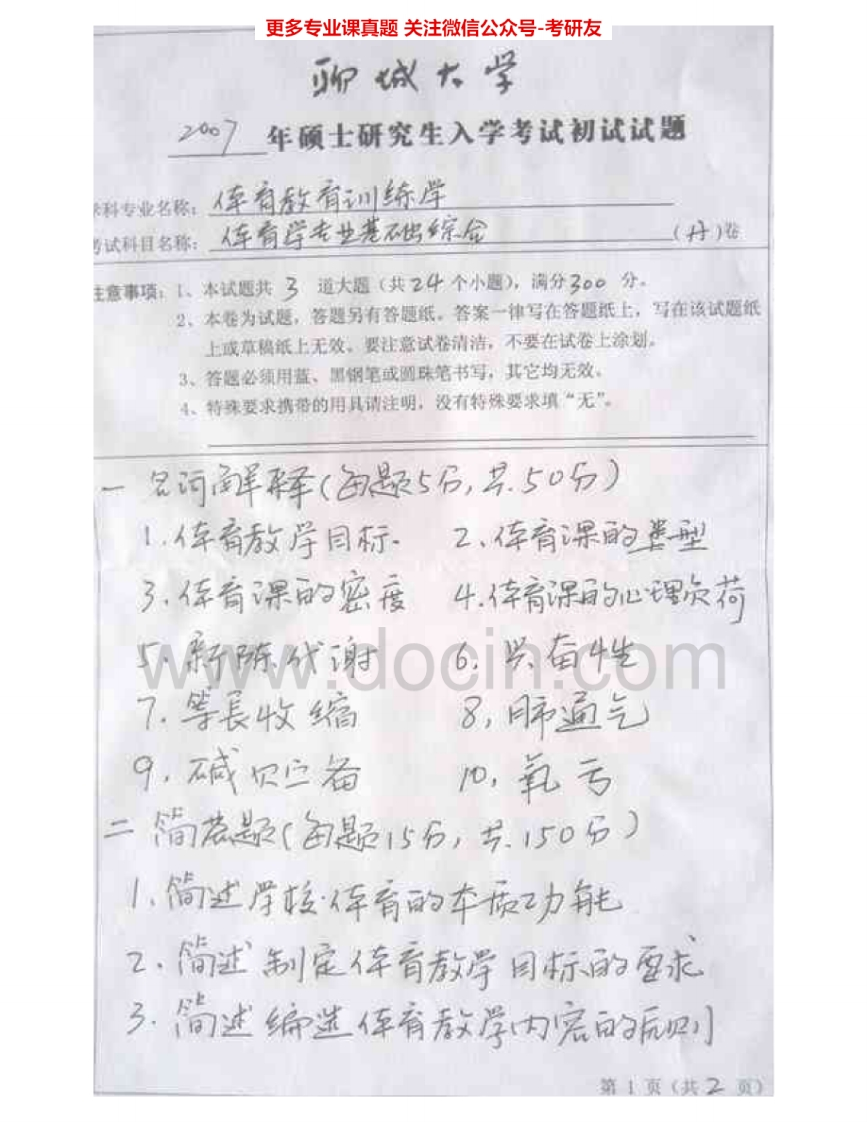 更多专业课真题 关注微信公众号-考研友
聊城大学
2007 年硕士研究生入学考试初试试题
学科专业名称：体育教育训练学
考试科目名称：体育学专业基础综合 （丹）卷
注意事项：1、本试题共 3 道大题（共24个小题），满分300 分。
2、本卷为试题，答题另有答题纸。答案一律写在答题纸上，写在该试题纸
上或草稿纸上无效。要注意试卷清洁，不要在试卷上涂划。
3、答题必须用蓝、黑钢笔或圆珠笔书写，其它均无效。
4、特殊要求携带的用具请注明，没有特殊要求填“无”。
一 名词解释（每题5分，共.50分）
1.体育教学目标. 2、体育课的类型
3.体育课的密度 4.体育课的心理负荷
5.新陈代谢 6.兴奋性
7.等长收缩 8，肺通气
9.碱贮备 10，氧亏
www.docin.com
二 简答题（每题15分，共.150分）
1、简述学校体育的本质功能
2、简述制定体育教学目标的要求
3.简述编选体育教学内容的原则
第 1 页（共 2 页）